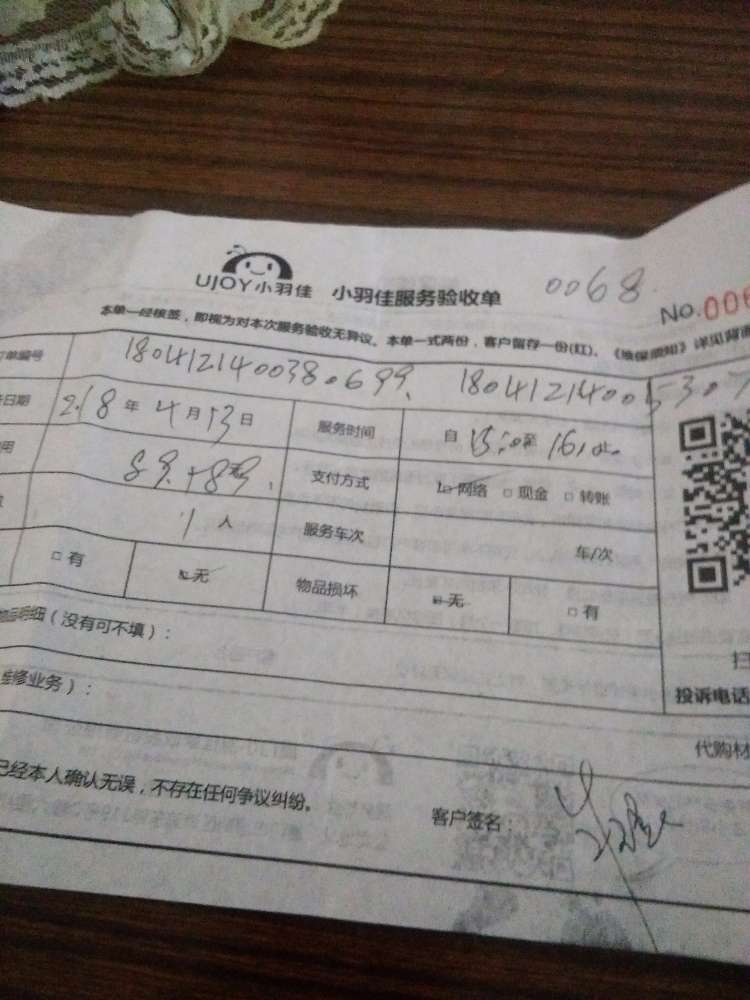 UJOY小羽佳 小羽佳服务验收单 0068 No.006
本单一经核签，即视为对本次服务验收无异议。本单一式两份，客户留存一份(红)。《维保须知》详见背面
单编号 1804121400380699、 18041214001530
日期 2.18年4月13日 服务时间 自15:00至16:
用 89.+89 支付方式 网络 □现金 □转账
1人 服务车次 车/次
□有 无 物品损坏 无 □有
物品明细（没有可不填）：
维修业务）：
投诉电话
代购材
已经本人确认无误，不存在任何争议纠纷。 客户签名：